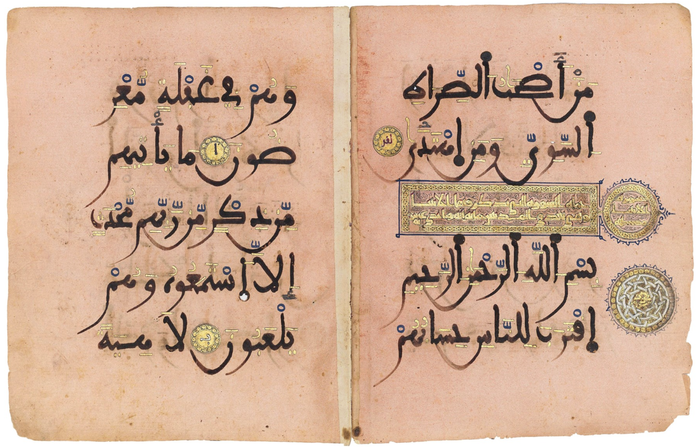 مَنْ أَصْحَٰبُ ٱلصِّرَٰطِ
ٱلسَّوِيِّ وَمَنِ ٱهْتَدَىٰ
بِسْمِ ٱللَّهِ ٱلرَّحْمَٰنِ ٱلرَّحِيمِ
ٱقْتَرَبَ لِلنَّاسِ حِسَابُهُمْ
وَهُمْ فِي غَفْلَةٍ مُّعْرِ
ضُونَ مَا يَأْتِيهِم
مِّن ذِكْرٍ مِّن رَّبِّهِم مُّحْدَثٍ
إِلَّا ٱسْتَمَعُوهُ وَهُمْ
يَلْعَبُونَ لَاهِيَةً